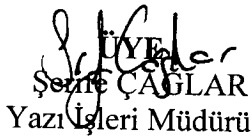 ÜYE
Şerife ÇAĞLAR
Yazı İşleri Müdürü